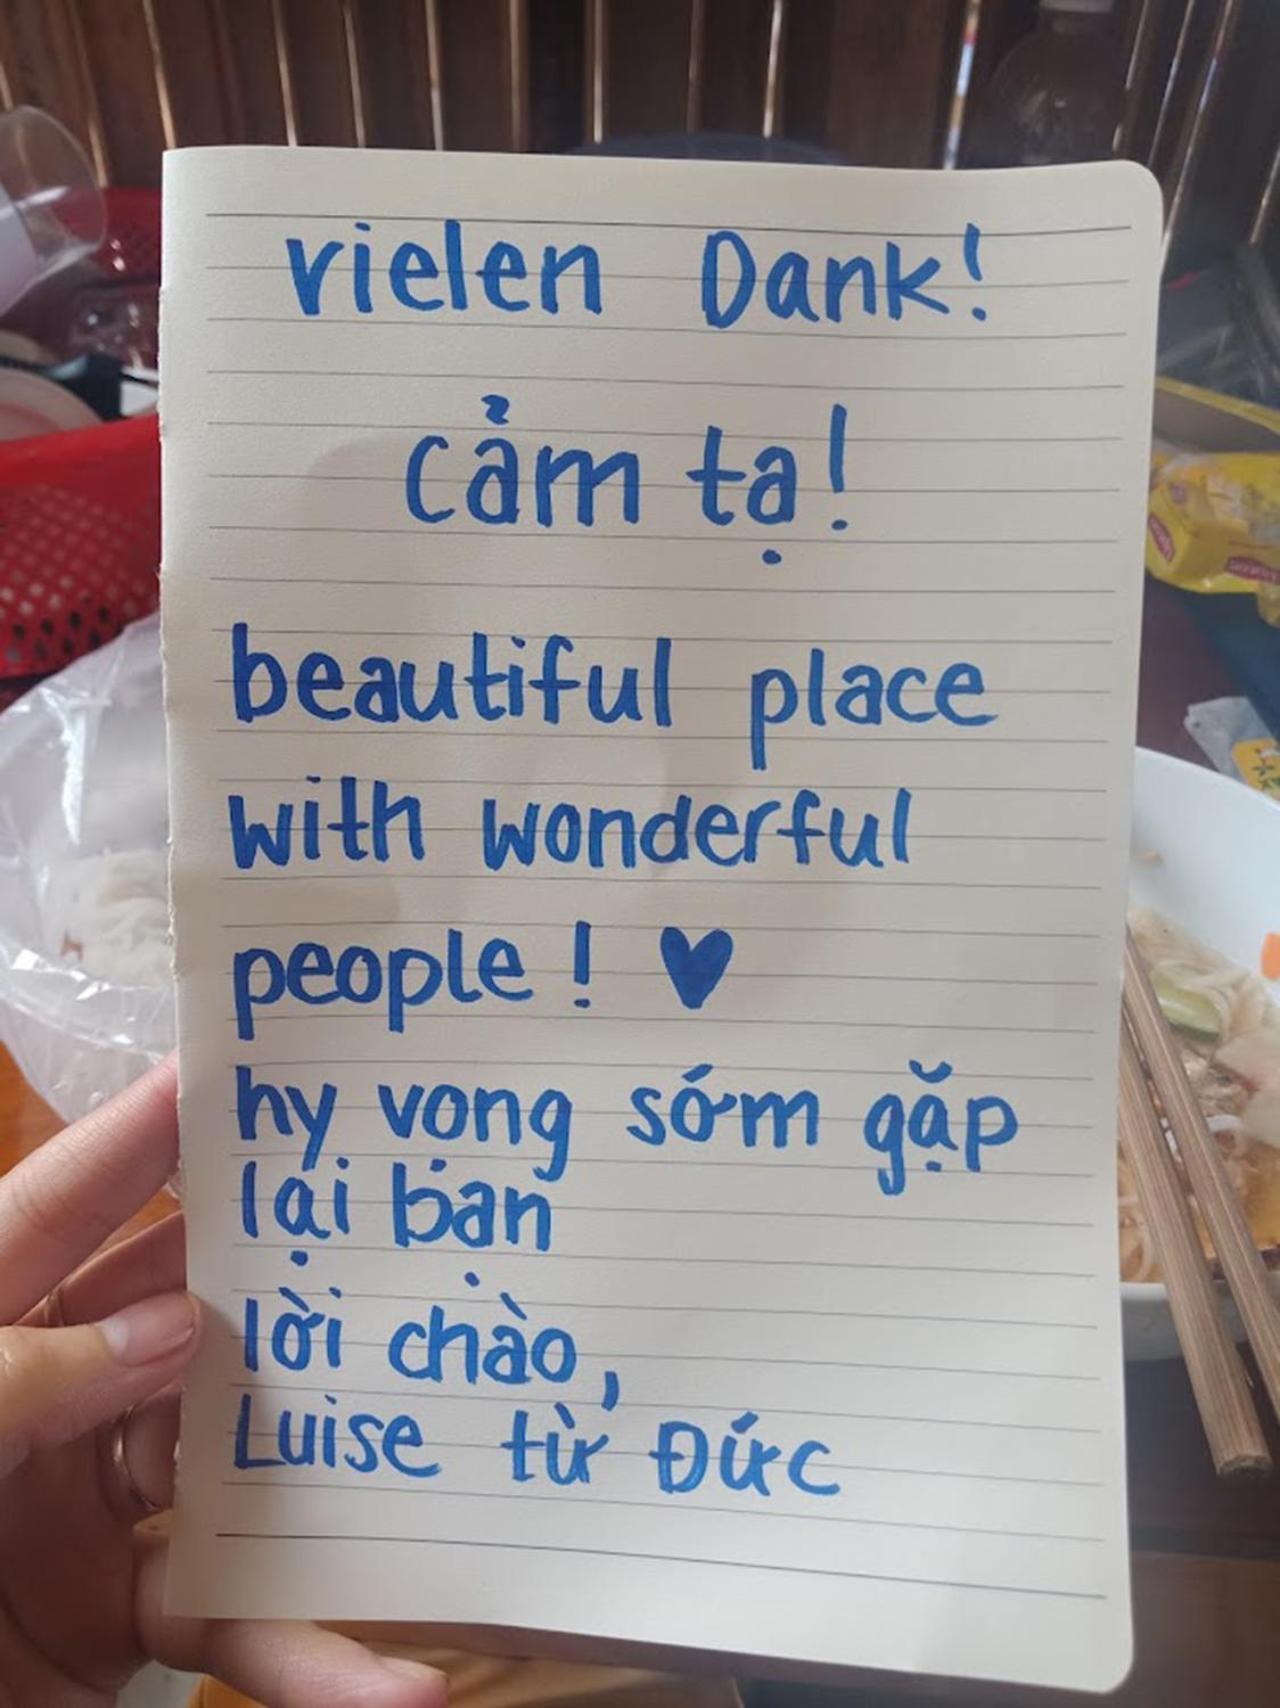 vielen Dank!
cảm tạ!
beautiful place
with wonderful
people! ♥
hy vọng sớm gặp
lại bạn
lời chào,
Luise từ Đức